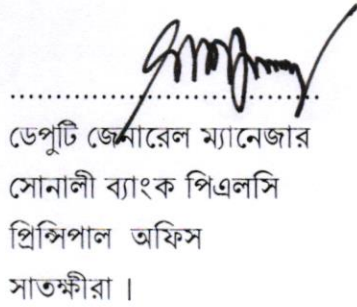 ডেপুটি জেনারেল ম্যানেজার
সোনালী ব্যাংক পিএলসি
প্রিন্সিপাল অফিস
সাতক্ষীরা ।